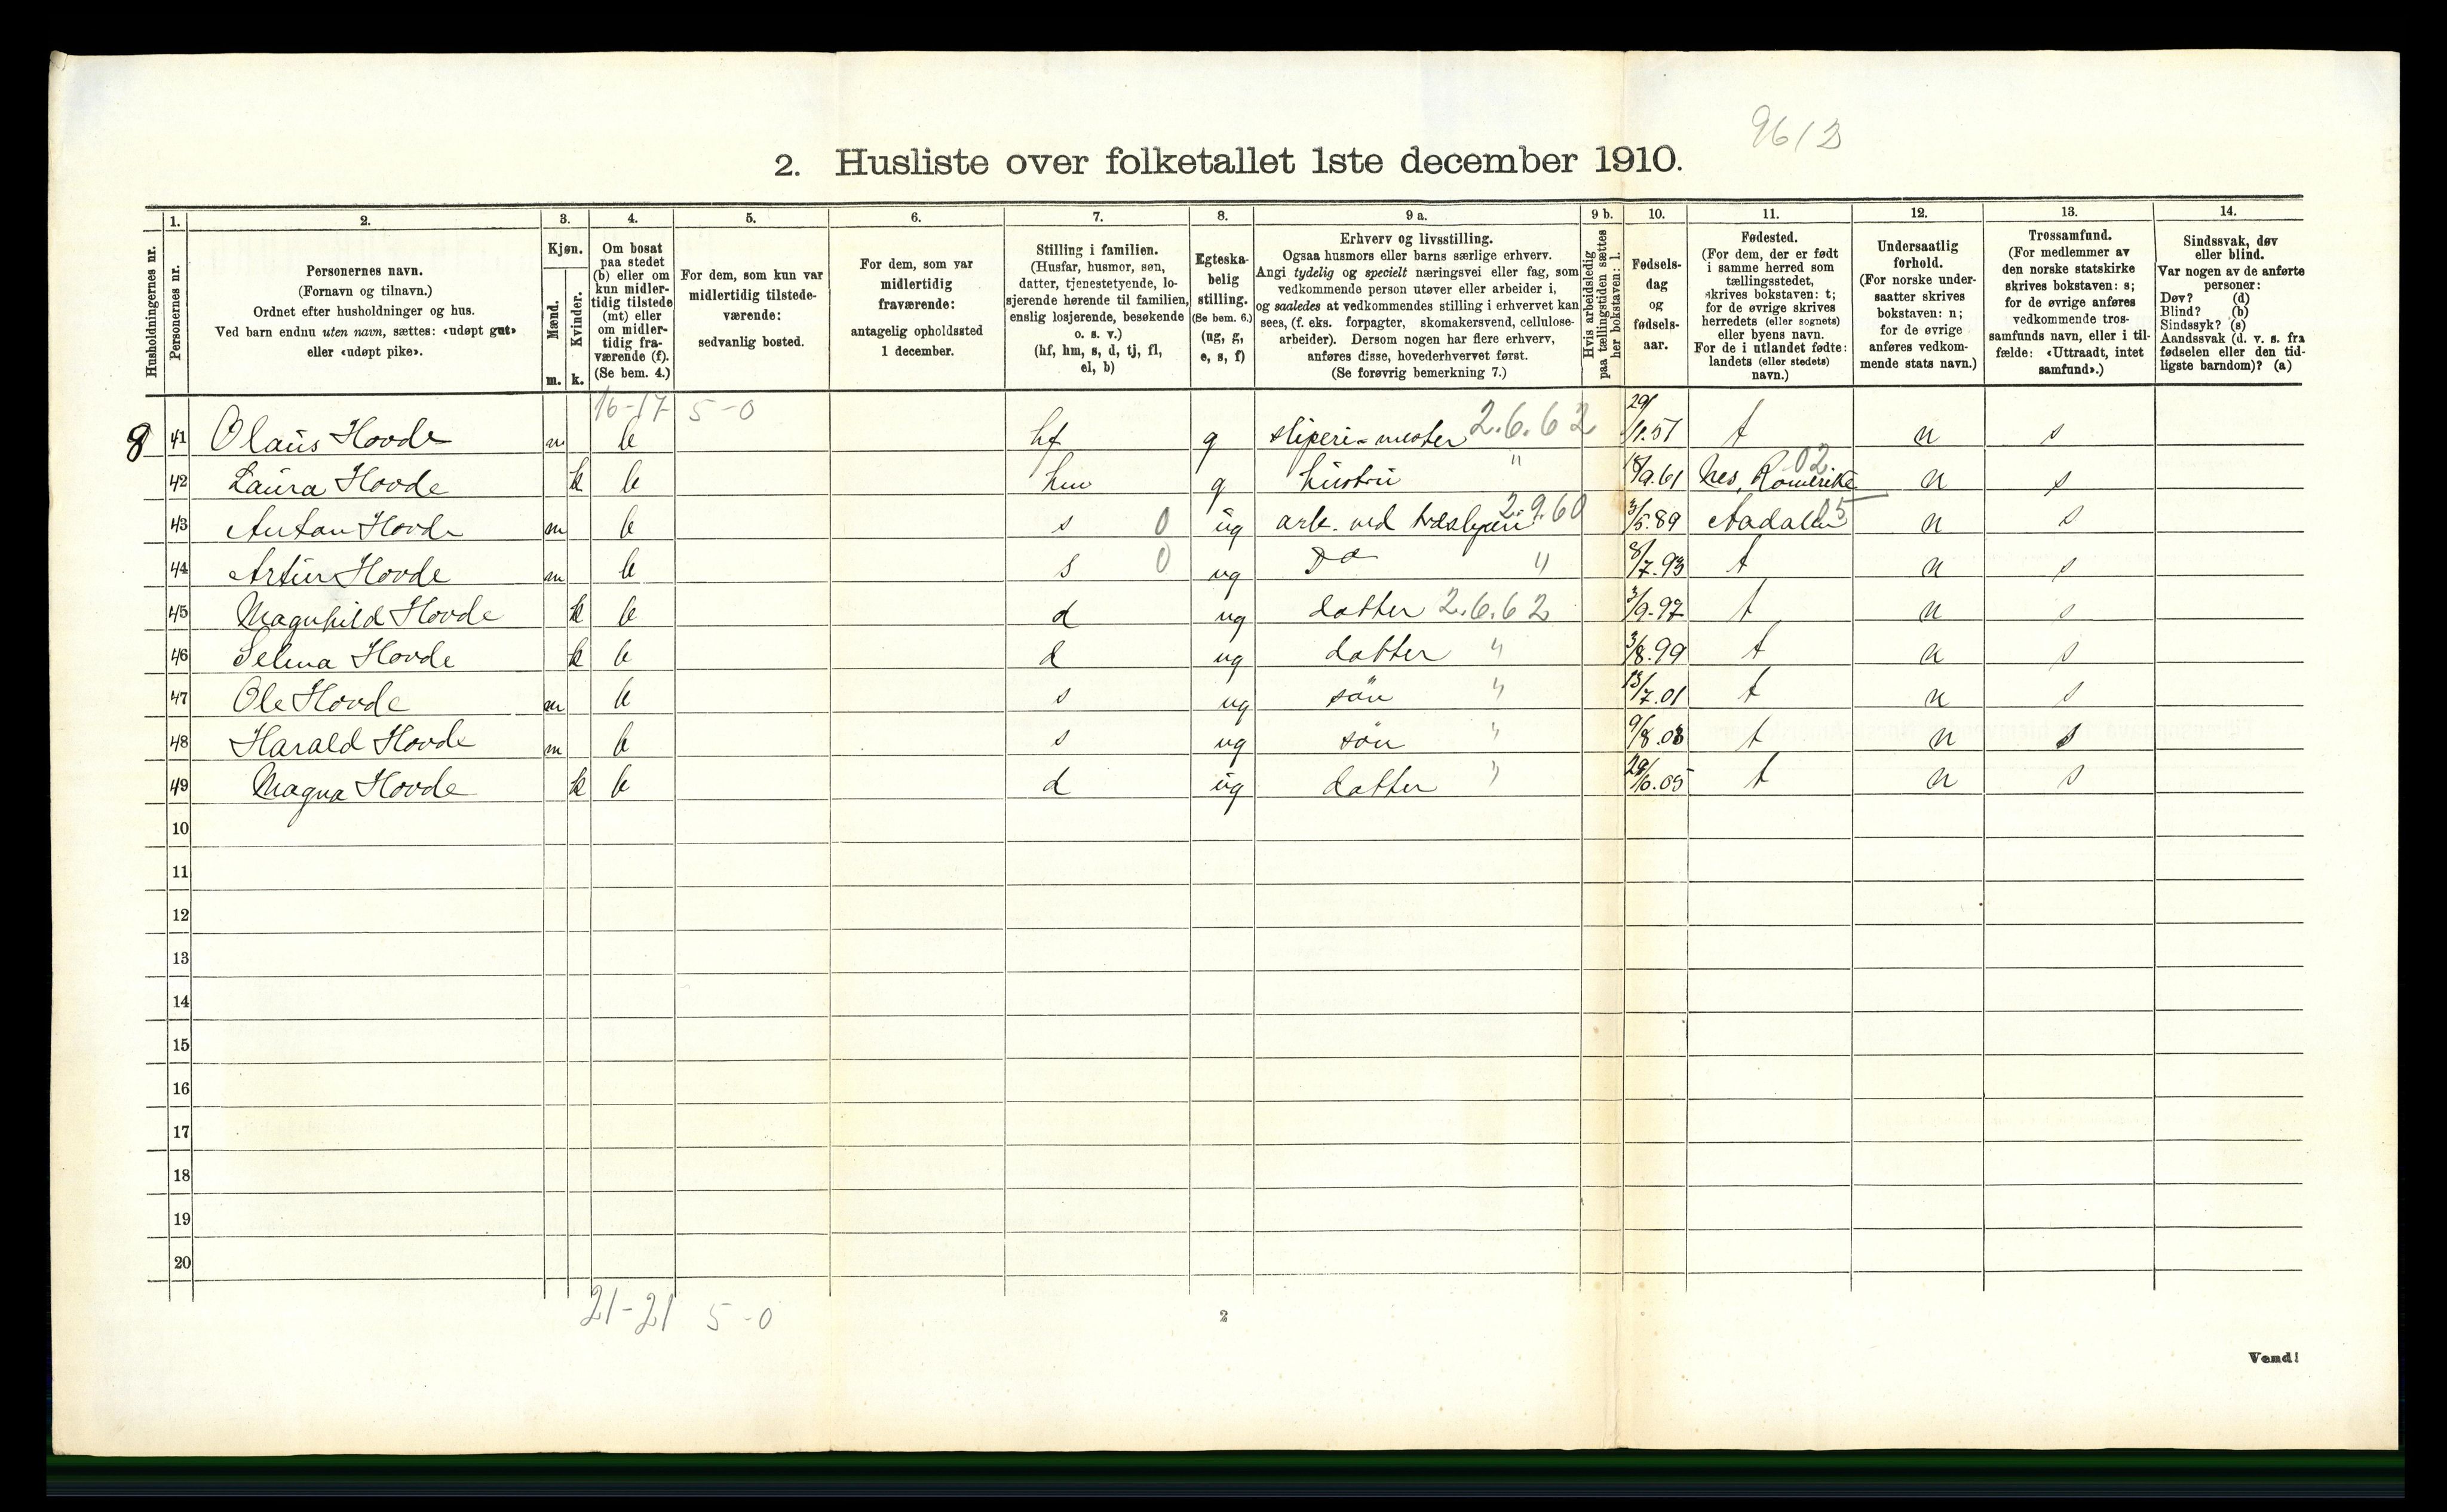 96/2
2. Husliste over folketallet 1ste december 1910.
1. 2. 3. 4. 5. 6. 7. 8. 9 a. 9 b. 10. 11. 12. 13. 14.
Husholdningernes nr.
Personernes nr.
Personernes navn.
(Fornavn og tilnavn.)
Ordnet efter husholdninger og hus.
Ved barn endnu uten navn, sættes: «udøpt gut»
eller «udøpt pike».
Kjøn.
Mænd.
Kvinder.
m. k.
Om bosat
paa stedet
(b) eller om
kun midler-
tidig tilstede
(mt) eller
om midler-
tidig fra-
værende (f).
(Se bem. 4.)
For dem, som kun var
midlertidig tilstede-
værende:
sedvanlig bosted.
For dem, som var
midlertidig
fraværende:
antagelig opholdssted
1 december.
Stilling i familien.
(Husfar, husmor, søn,
datter, tjenestetyende, lo-
sjerende hørende til familien,
enslig losjerende, besøkende
o. s. v.)
(hf, hm, s, d, tj, fl,
el, b)
Egteska-
belig
stilling.
(Se bem. 6.)
(ug, g,
e, s, f)
Erhverv og livsstilling.
Ogsaa husmors eller barns særlige erhverv.
Angi tydelig og specielt næringsvei eller fag, som
vedkommende person utøver eller arbeider i,
og saaledes at vedkommendes stilling i erhvervet kan
sees, (f. eks. forpagter, skomakersvend, cellulose-
arbeider). Dersom nogen har flere erhverv,
anføres disse, hovederhvervet først.
(Se forøvrig bemerkning 7.)
Hvis arbeidsledig
paa tællingstiden sættes
her bokstaven: l.
Fødsels-
dag
og
fødsels-
aar.
Fødested.
(For dem, der er født
i samme herred som
tællingsstedet,
skrives bokstaven: t;
for de øvrige skrives
herredets (eller sognets)
eller byens navn.
For de i utlandet fødte:
landets (eller stedets)
navn.)
Undersaatlig
forhold.
(For norske under-
saatter skrives
bokstaven: n;
for de øvrige
anføres vedkom-
mende stats navn.)
Trossamfund.
(For medlemmer av
den norske statskirke
skrives bokstaven: s;
for de øvrige anføres
vedkommende tros-
samfunds navn, eller i til-
fælde: «Uttraadt, intet
samfund».)
Sindssvak, døv
eller blind.
Var nogen av de anførte
personer:
Døv? (d)
Blind? (b)
Sindssyk? (s)
Aandssvak (d. v. s. fra
fødselen eller den tid-
ligste barndom)? (a)
16-17 5-0
8 41 Olaus Hovde m b hf g sliperi-mester 2.6.62 29/1.57 t n s
42 Laura Hovde k b hm g hustru " 18/9.61 Nes, Romerike 02 n s
43 Anton Hovde m b s 0 ug arb. ved træsliperi 2.9.60 3/5.89 Aadalen 05 n s
44 Artur Hovde m b s 0 ug Do " 8/7.93 t n s
45 Magnhild Hovde k b d ug datter 2.6.62 3/9.97 t n s
46 Selma Hovde k b d ug datter " 3/8.99 t n s
47 Ole Hovde m b s ug søn " 13/7.01 t n s
48 Harald Hovde m b s ug søn " 9/8.03 t n s
49 Magna Hovde k b d ug datter " 29/6.05 t n s
10
11
12
13
14
15
16
17
18
19
20
21-21 5-0
2
Vend!